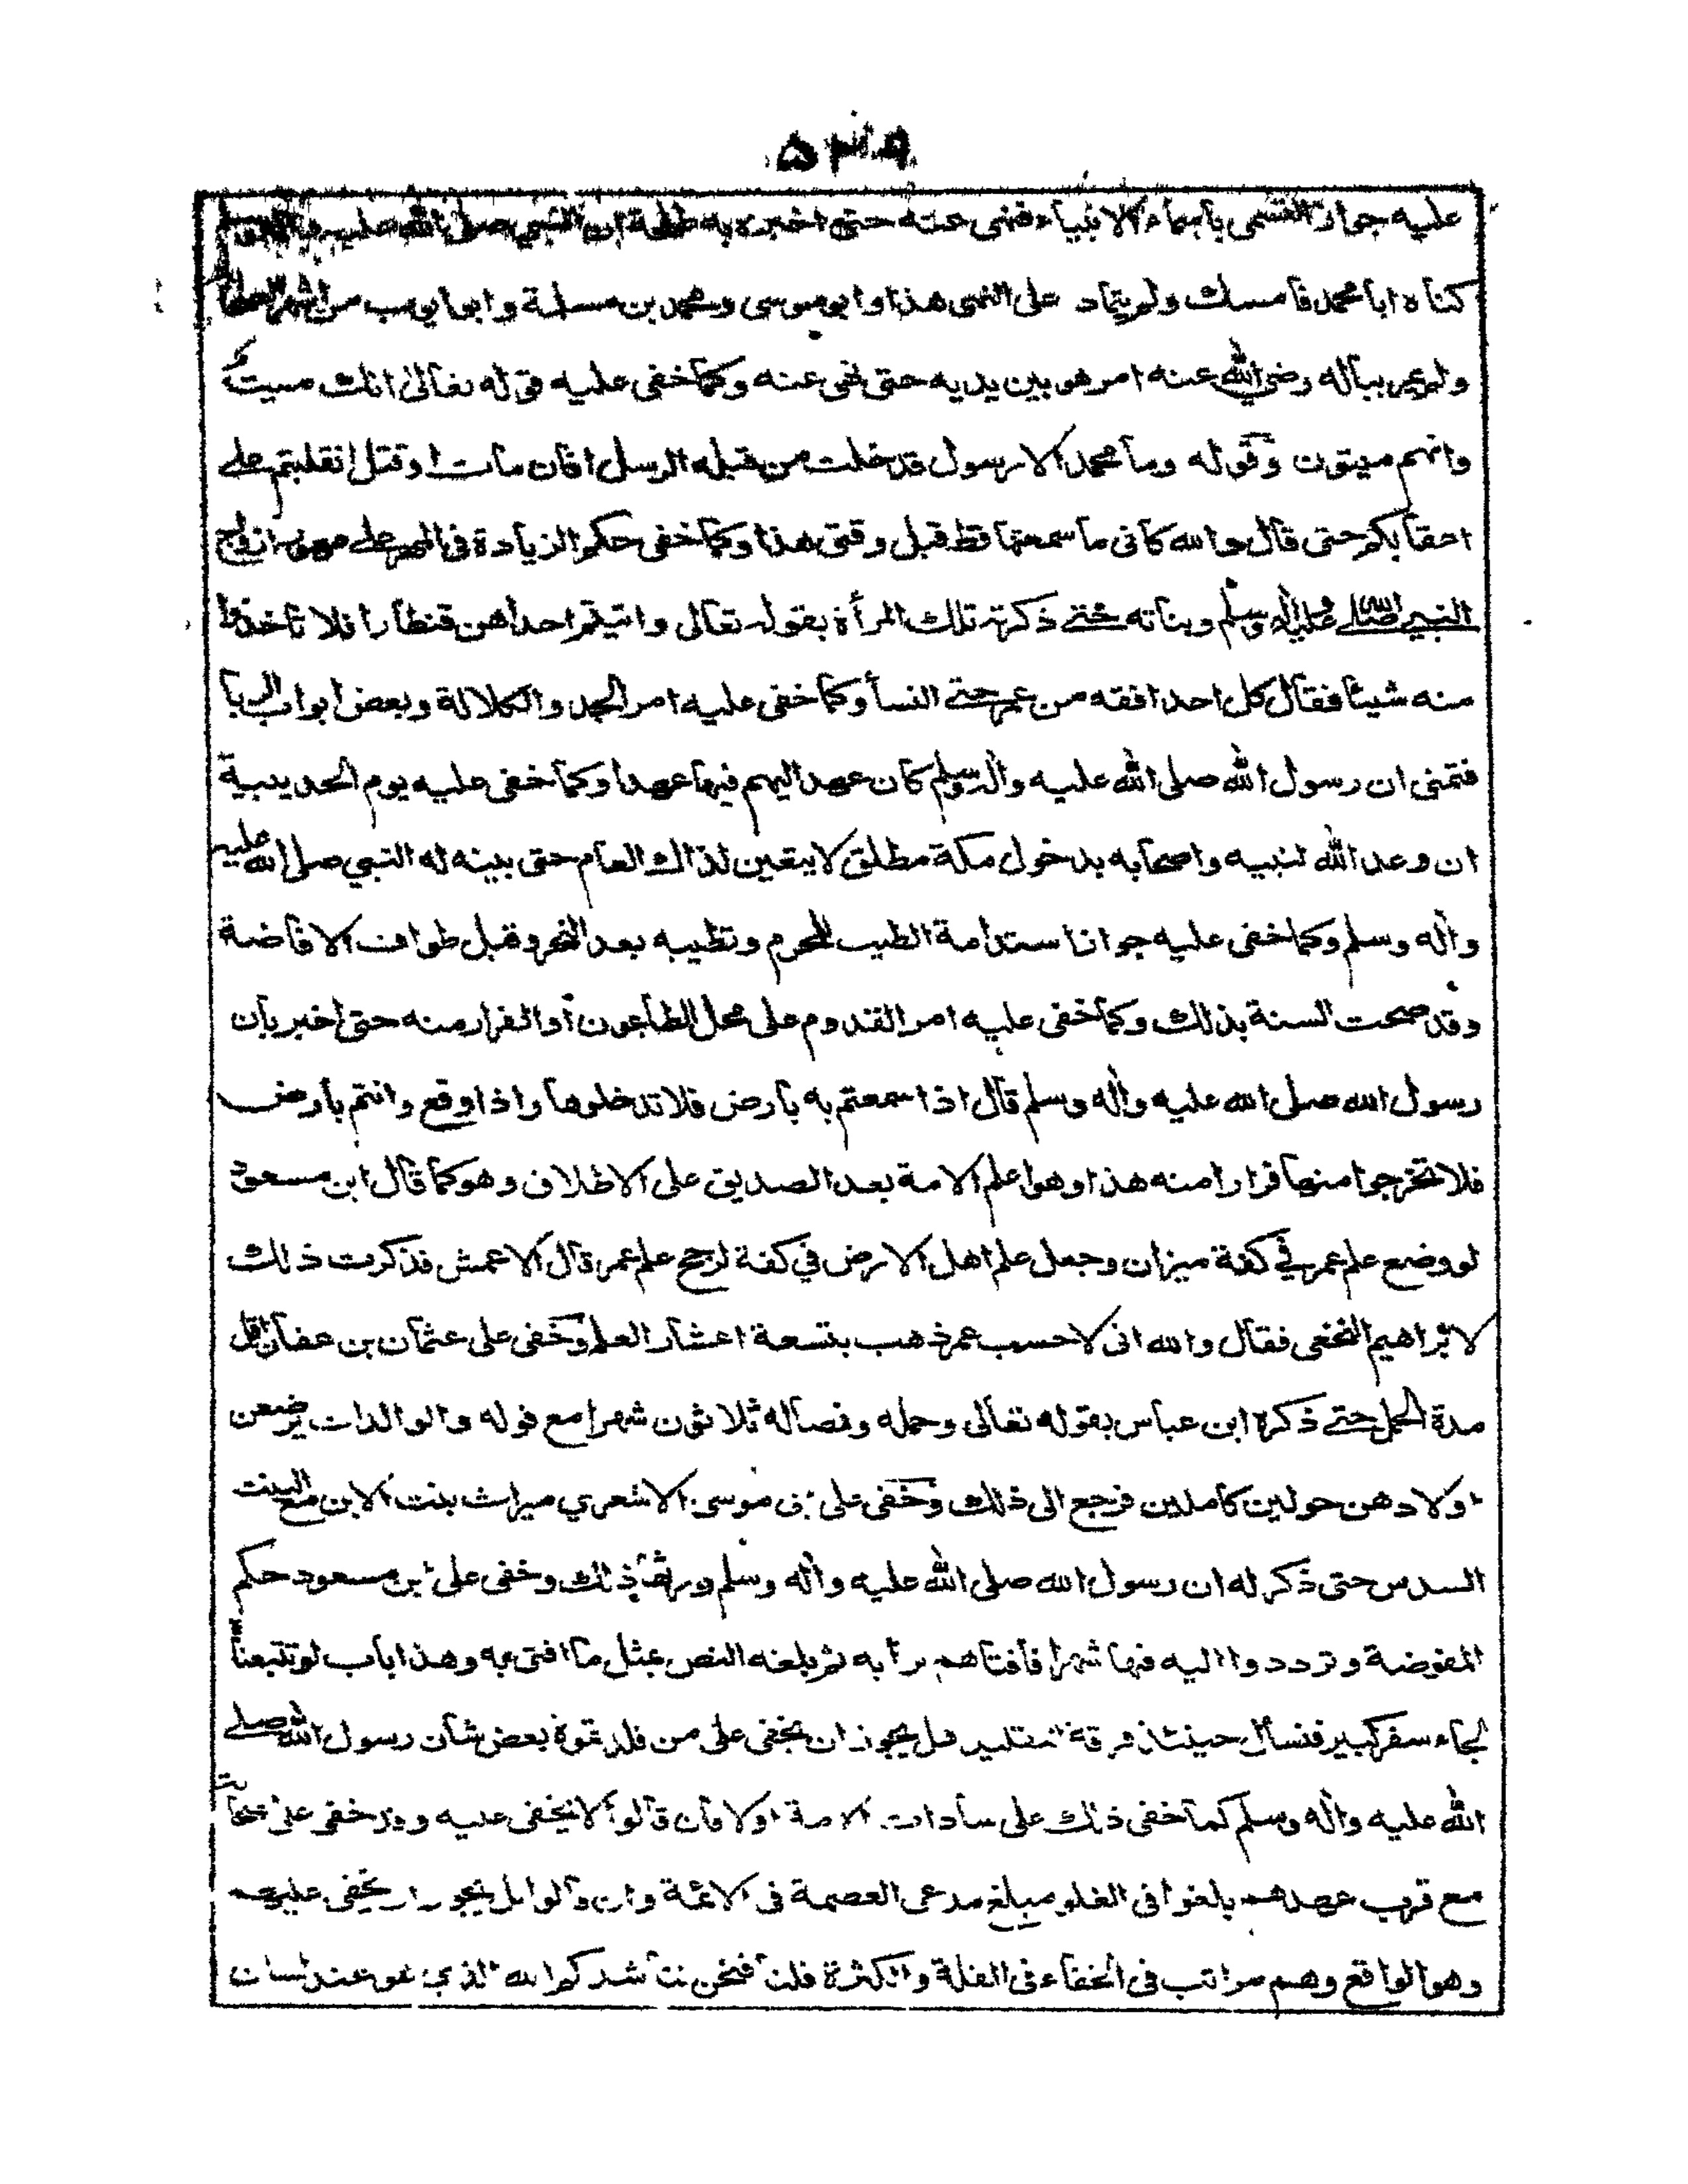 ٥٣٩
عليه جواز التسمى بأسماء الانبياء فنهى عنه حتى اخبره به طلحة ان النبي صلى الله عليه وآله وسلم
كناه ابا محمد فامسك ولم يتماد على النهى هذا وابو موسى ومحمد بن مسلمة وابو ايوب من اشهر الصحابة
ولم يمر بباله رضي الله عنه امر هو بين يديه حتى نهى عنه وكما خفى عليه قوله تعالى انك ميت
وانهم ميتون وقوله وما محمد الا رسول قد خلت من قبله الرسل افان مات او قتل انقلبتم على
اعقابكم حتى قال والله كانى ما سمعتها قط قبل وقتى هذا وكما خفى حكم الزيادة فى المهر على مهر ازواج
النبي صلى الله عليه وآله وسلم وبناته حتى ذكرته تلك المرأة بقوله تعالى واتيتم احداهن قنطارا فلا تأخذوا
منه شيئا فقال كل احد افقه من عمر حتى النسأ وكما خفى عليه امر الجد والكلالة وبعض ابواب الربا
فتمنى ان رسول الله صلى الله عليه واله وسلم كان عهد اليهم فيها عهدا وكما خفى عليه يوم الحديبية
ان وعد الله لنبيه واصحابه بدخول مكة مطلق لا يتعين لذلك العام حتى بينه له النبي صلى الله عليه
واله وسلم وكما خفى عليه جواز استدامة الطيب للمحرم وتطيبه بعد النحر وقبل طواف الافاضة
وقد صحت السنة بذلك وكما خفى عليه امر القدوم على محل الطاعون أو الفرار منه حتى اخبر بان
رسول الله صلى الله عليه واله وسلم قال اذا سمعتم به بأرض فلا تدخلوها واذا وقع وانتم بأرض
فلا تخرجوا منها فرارا منه هذا وهو اعلم الامة بعد الصديق على الاطلاق وهو كما قال ابن مسعود
لو وضع علم عمر في كفة ميزان وجعل علم اهل الارض في كفة لرجح علم عمر قال الاعمش فذكرت ذلك
لابراهيم النخعى فقال والله انى لاحسب عمر ذهب بتسعة اعشار العلم وخفى على عثمان بن عفان اقل
مدة الحمل حتى ذكره ابن عباس بقوله تعالى وحمله وفصاله ثلاثون شهرا مع قوله والوالدات يرضعن
اولادهن حولين كاملين فرجع الى ذلك وخفى على ابى موسى الاشعري ميراث بنت الابن مع البنت
السدس حتى ذكر له ان رسول الله صلى الله عليه واله وسلم ورثها ذلك وخفى على ابن مسعود حكم
المفوضة وترددوا اليه فيها شهرا فأفتاهم برأيه ثم بلغه النص بمثل ما افتى به وهذا باب لو تتبعناه
لجاء سفر كبير فنسأل حينئذ فرقة التقليد هل يجوز ان يخفى على من قلدتموه بعض شأن رسول الله صلى
الله عليه واله وسلم كما خفى ذلك على سادات الامة اولا فان قالوا لا يخفى عليه وقد خفى على الصحابة
مع قرب عهدهم بلغوا فى الغلو مبلغ مدعى العصمة فى الائمة وان قالوا بل يجوز ان يخفى عليهم
وهو الواقع وهم مراتب فى الخفاء فى القلة والكثرة قلنا فنحن نناشدكم الله الذي هو عند لسان